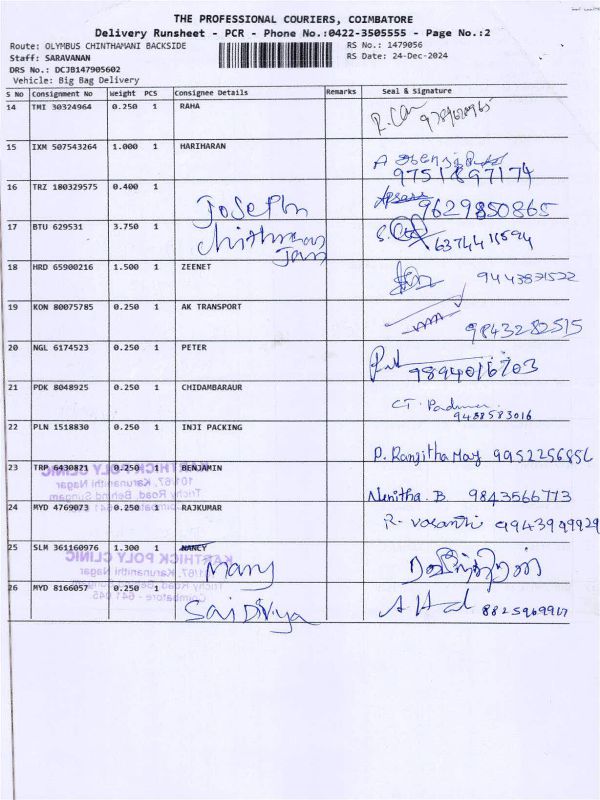 THE PROFESSIONAL COURIERS, COIMBATORE
Delivery Runsheet - PCR - Phone No.:0422-3505555 - Page No.:2
Route: OLYMBUS CHINTHAMANI BACKSIDE RS No.: 1479056
Staff: SARAVANAN RS Date: 24-Dec-2024
DRS No.: DCJB147905602
Vehicle: Big Bag Delivery
S No Consignment No Weight PCS Consignee Details Remarks Seal & Signature
14 TMI 30324964 0.250 1 RAHA
15 IXM 507543264 1.000 1 HARIHARAN 9751897174
16 TRZ 180329575 0.400 1 Joseph 9629850865
17 BTU 629531 3.750 1
18 HRD 65900216 1.500 1 ZEENET 9443821522
19 KON 80075785 0.250 1 AK TRANSPORT 9843282515
20 NGL 6174523 0.250 1 PETER 9894016703
21 PDK 8048925 0.250 1 CHIDAMBARAUR CT. Padma 9488583016
22 PLN 1518830 0.250 1 INJI PACKING P. Ranjitha Mary 9952256856
23 TRP 6430821 0.250 1 BENJAMIN Nenitha. B 9843566773
24 MYD 4769073 0.250 1 RAJKUMAR R. vasanthi 9943999929
25 SLM 361160976 1.300 1 NANCY Mary
26 MYD 8166057 0.250 1 Sai Divya 8825969967
KARTHICK POLY CLINIC
101/67, Karunanithi Nagar
Trichy Road, Behind Sungam
KARTHICK POLY CLINIC
Karunanithi Nagar
Coimbatore - 641 045